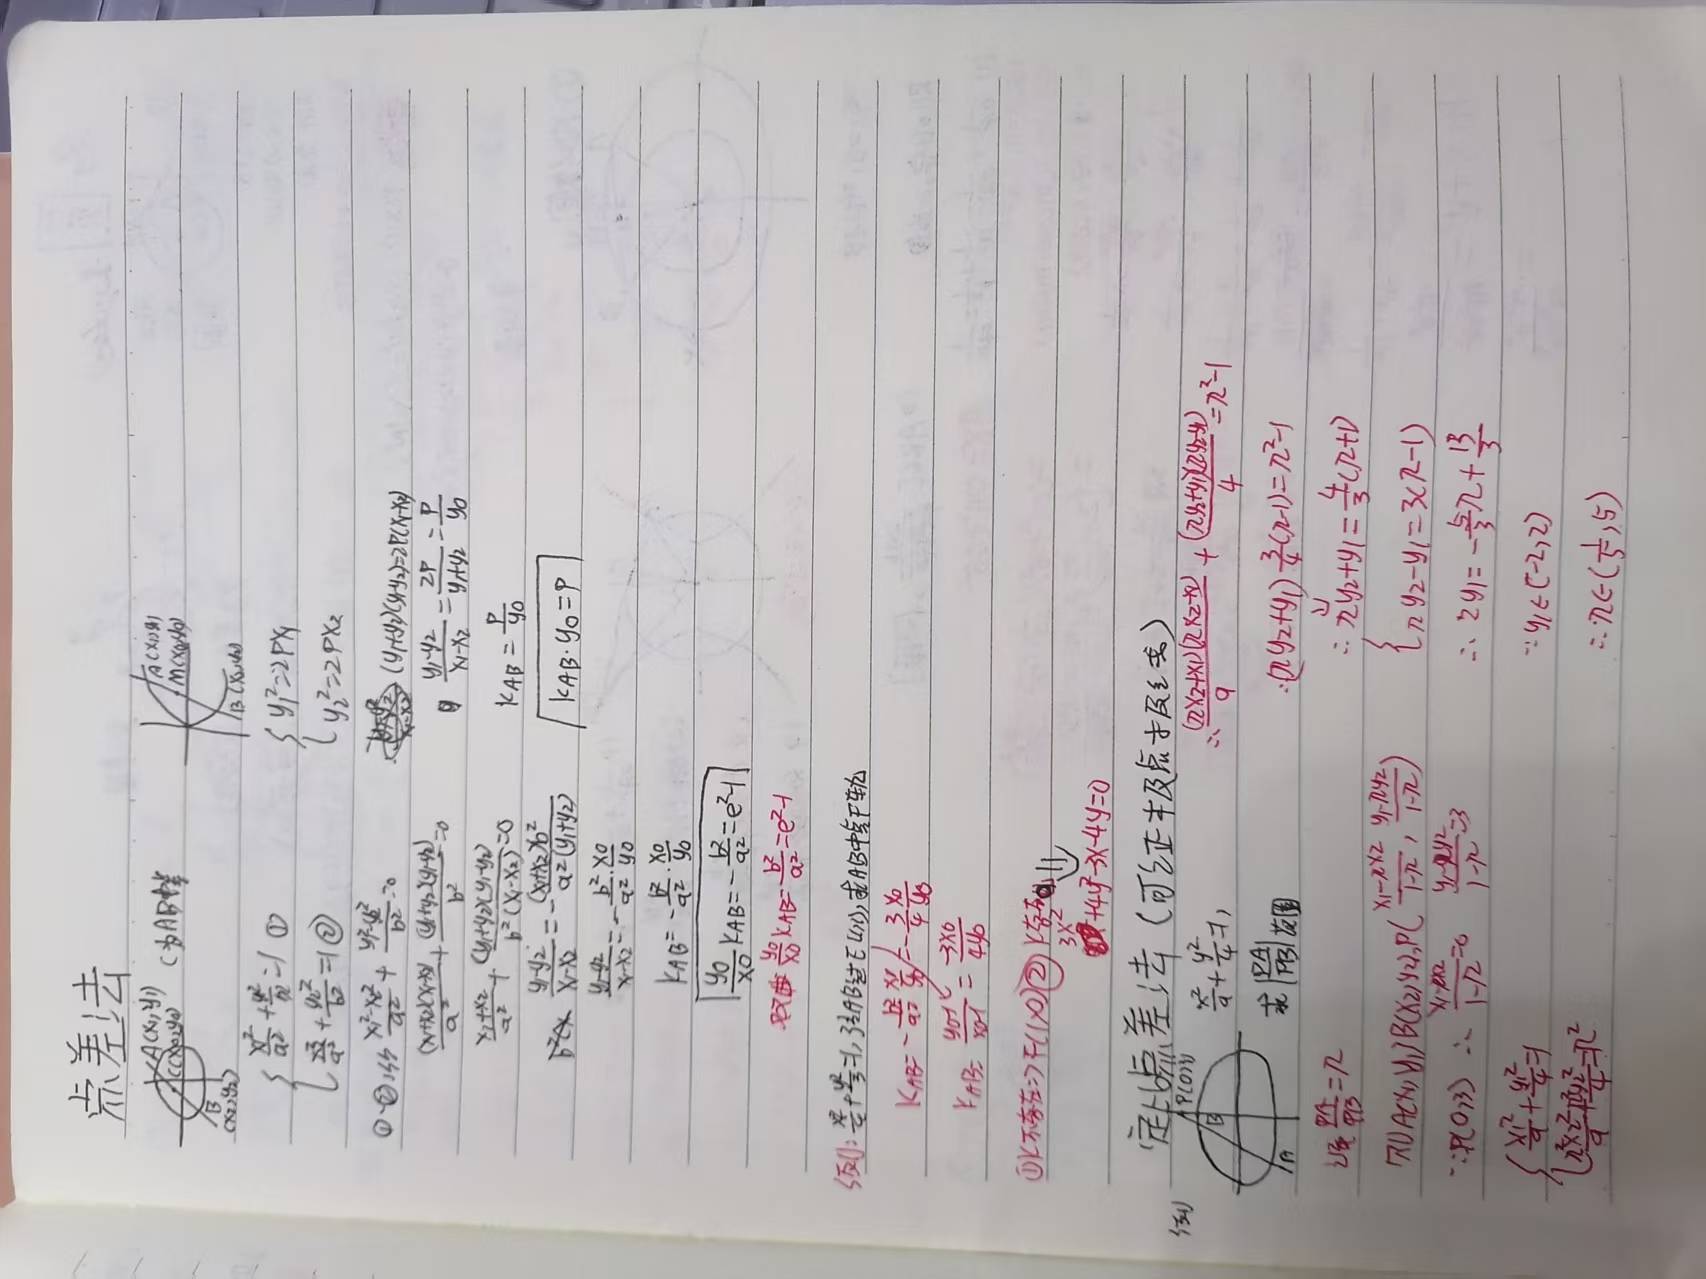 点差法
A(x₁,y₁)
C(x₀,y₀)
B
(x₂,y₂)
A(x₁,y₁)
M(x₀,y₀)
B(x₂,y₂)
{ x₁²/a² + y₁²/b² = 1 ①
x₂²/a² + y₂²/b² = 1 ②
①-②得
(x₁²-x₂²)/a² + (y₁²-y₂²)/b² = 0
(x₁+x₂)(x₁-x₂)/a² + (y₁+y₂)(y₁-y₂)/b² = 0
(x₁+x₂)/a² + (y₁+y₂)(y₁-y₂)/b²(x₁-x₂) = 0
(y₁-y₂)/(x₁-x₂) = -(x₁+x₂)b²/a²(y₁+y₂)
(y₁-y₂)/(x₁-x₂) = -b²/a²·x₀/y₀
k_AB = -b²/a²·x₀/y₀
y₀/x₀ k_AB = -b²/a² = e²-1
双曲 y₀/x₀ k_AB = b²/a² = e²-1
{ y₁²=2px₁
y₂²=2px₂
(y₁+y₂)(y₁-y₂)=2p(x₁-x₂)
(y₁-y₂)/(x₁-x₂) = 2p/(y₁+y₂) = p/y₀
k_AB = p/y₀
k_AB·y₀=p
例: x²/4 + y²/3 = 1, 弦AB过E(1,1), 求AB中点轨迹
k_AB = -b²/a² x₀/y₀ = -3/4 x₀/y₀
k_AB = (y₀-1)/(x₀-1) = -3x₀/4y₀
①k不存在⇒F(1,0) ② k存在
3x²+4y²-3x-4y=0
定比点差法(可纯正半及点半及弦)
例
P(0,3)
B
A
x²/9 + y²/4 = 1,
求|PA|/|PB|范围
设PA/PB=λ
则A(x₁,y₁)B(x₂,y₂),P((x₁-λx₂)/(1-λ), (y₁-λy₂)/(1-λ))
∵P(0,3) ∴ (x₁-λx₂)/(1-λ)=0 (y₁-λy₂)/(1-λ)=3
{ x₁²/9 + y₁²/4 = 1
λ²x₂²/9 + λ²y₂²/4 = λ²
∴ (λx₂+x₁)(λx₂-x₁)/9 + (λy₂+y₁)(λy₂-y₁)/4 = λ²-1
∴(λy₂+y₁)·3/4(λ-1)=λ²-1
∴ λy₂+y₁=4/3(λ+1)
{ λy₂-y₁=3(λ-1)
∴ 2y₁=-5/3λ+13/3
∵ y₁∈(-2,2)
∴λ∈(1/5,5)